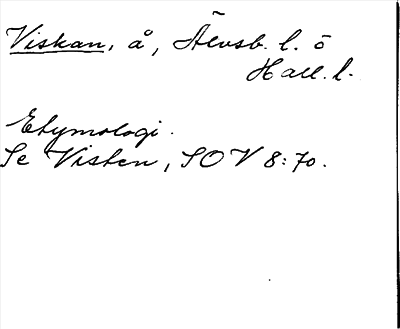 Viskan, å, Älvsb. l. o
Hall. l.
Etymologi.
Se Visten, SOV 8:70.